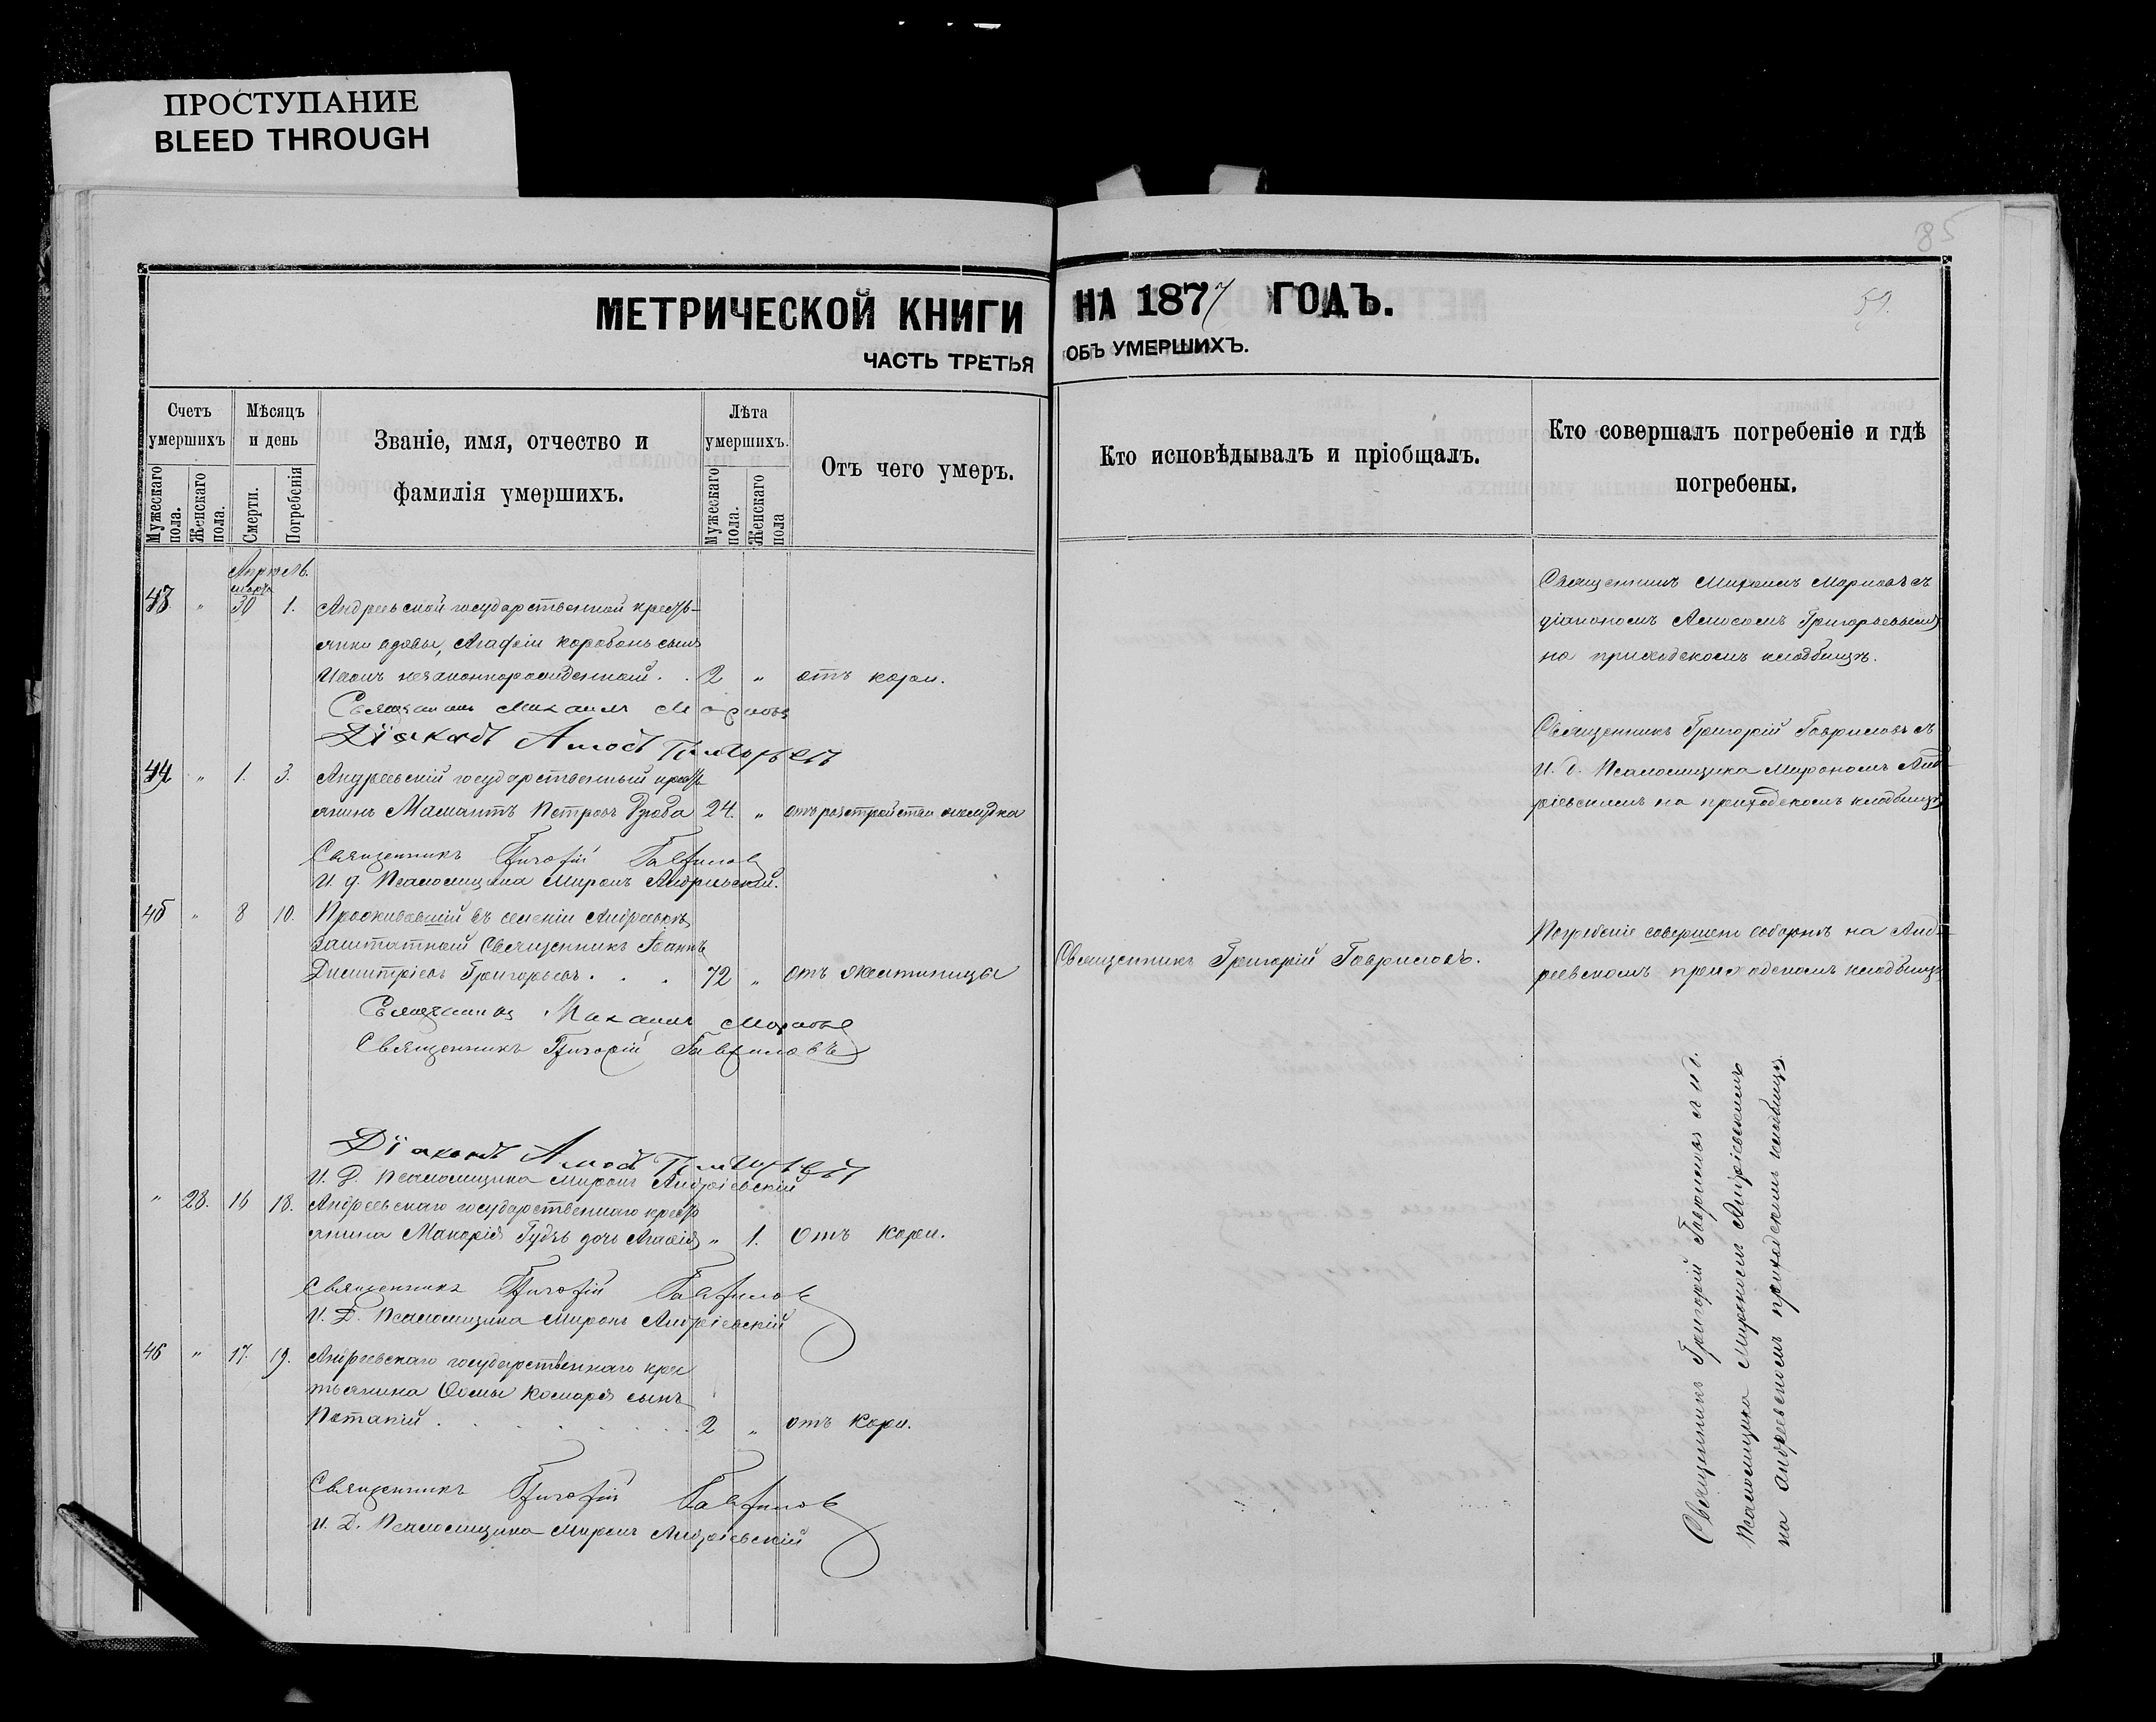 ПРОСТУПАНИЕ
BLEED THROUGH
85
МЕТРИЧЕСКОЙ КНИГИ НА 1877 ГОДЪ.
59.
ЧАСТЬ ТРЕТЬЯ ОБЪ УМЕРШИХЪ.
Счетъ умершихъ
Мѣсяцъ и день
Званіе, имя, отчество и фамилія умершихъ.
Лѣта умершихъ.
Отъ чего умеръ.
Кто исповѣдывалъ и пріобщалъ.
Кто совершалъ погребеніе и гдѣ погребены.
Мужескаго пола.
Женскаго пола.
Смерти.
Погребенія
Мужескаго пола.
Женскаго пола
Апрѣль.
марта
43. " 30 1. Андреевской государственной кресть-
янки вдовы, Агафіи Коробань сынъ
незаконнорожденный . . 2 " отъ кори.
Священникъ Михаилъ Марковъ
Діаконъ Амосъ Григорьевъ
Священникъ Михаилъ Марковъ съ
діакономъ Амосомъ Григорьевымъ
на приходскомъ кладбищѣ.
44 " 1. 3. Андреевскій государственный кресть
янинъ Мамантъ Петровъ Дзюба 24. " отъ разстройства желудка
Священникъ Григорій Гавриловъ
И. д. Псаломщика Миронъ Андріевскій.
Священникъ Григорій Гавриловъ съ
И. д. Псаломщика Мирономъ Анд-
ріевскимъ на приходскомъ кладбищѣ
45 " 8 10. Проживавшій въ селеніи Андреевкѣ
заштатный Священникъ Іоаннъ
Димитріевъ Григорьевъ . . . 72 " отъ
Священникъ Григорій Гавриловъ.
Погребеніе совершено соборнѣ на Анд-
реевскомъ приходскомъ кладбищѣ
Священникъ Михаилъ Марковъ
Священникъ Григорій Гавриловъ
Діаконъ Амосъ Григорьевъ
И. Д. Псаломщика Миронъ Андріевскій
" 28. 16 18. Андреевскаго государственнаго кресть
янина Макарія Гудзь дочь " 1. Отъ кори.
Священникъ Григорій Гавриловъ
И. Д. Псаломщика Миронъ Андріевскій
46 " 17. 19. Андреевскаго государственнаго крес
тьянина Ѳомы Комаря сынъ
Потапій . . . . . . 2 " отъ кори.
Священникъ Григорій Гавриловъ
И. Д. Псаломщика Миронъ Андріевскій
Священникъ Григорій Гавриловъ съ И д.
Псаломщика Мирономъ Андріевскимъ
на Андреевскомъ приходскомъ кладбищѣ.